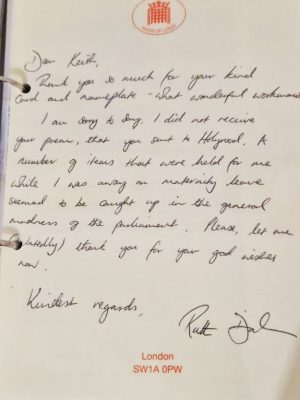 HOUSE OF LORDS
Dear Keith,
Thank you so much for your kind
card and nameplate - what wonderful
I am sorry to say, I did not receive
your poems, that you sent to Holyrood. A
number of items that were held for me
while I was away on maternity leave
seemed to be caught up in the general
madness of the parliament. Please, let me
(belatedly) thank you for your good wishes
now.
Kindest regards,
Ruth
London
SW1A 0PW